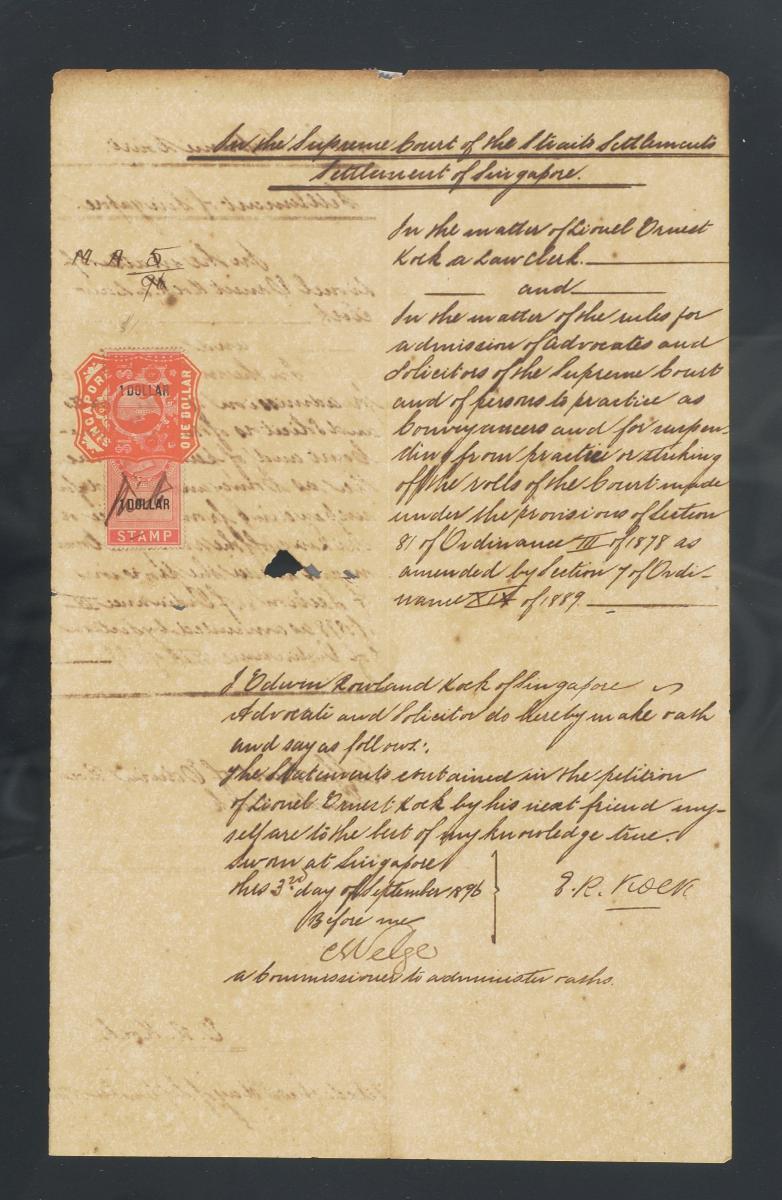 In the Supreme Court of the Straits Settlements
Settlement of Singapore.
In the matter of Lionel Ernest
Kock a Law Clerk.
and
In the matter of the rules for
admission of Advocates and
Solicitors of the Supreme Court
and of persons to practice as
Conveyancers and for suspen-
ding from practice or striking
off the rolls of the Court made
under the provisions of Section
81 of Ordinance III of 1878 as
amended by Section 7 of Ordi-
nance XIX of 1889.
5
96
SINGAPORE
1 DOLLAR
ONE DOLLAR
1 DOLLAR
STAMP
I Edwin Rowland Kock of Singapore
Advocate and Solicitor do hereby make oath
and say as follows:
The Statements contained in the petition
of Lionel Ernest Kock by his next friend my-
self are to the best of my knowledge true.
Sworn at Singapore
this 3rd day of September 1896
E. R. Kock
Before me
a Commissioner to administer oaths.